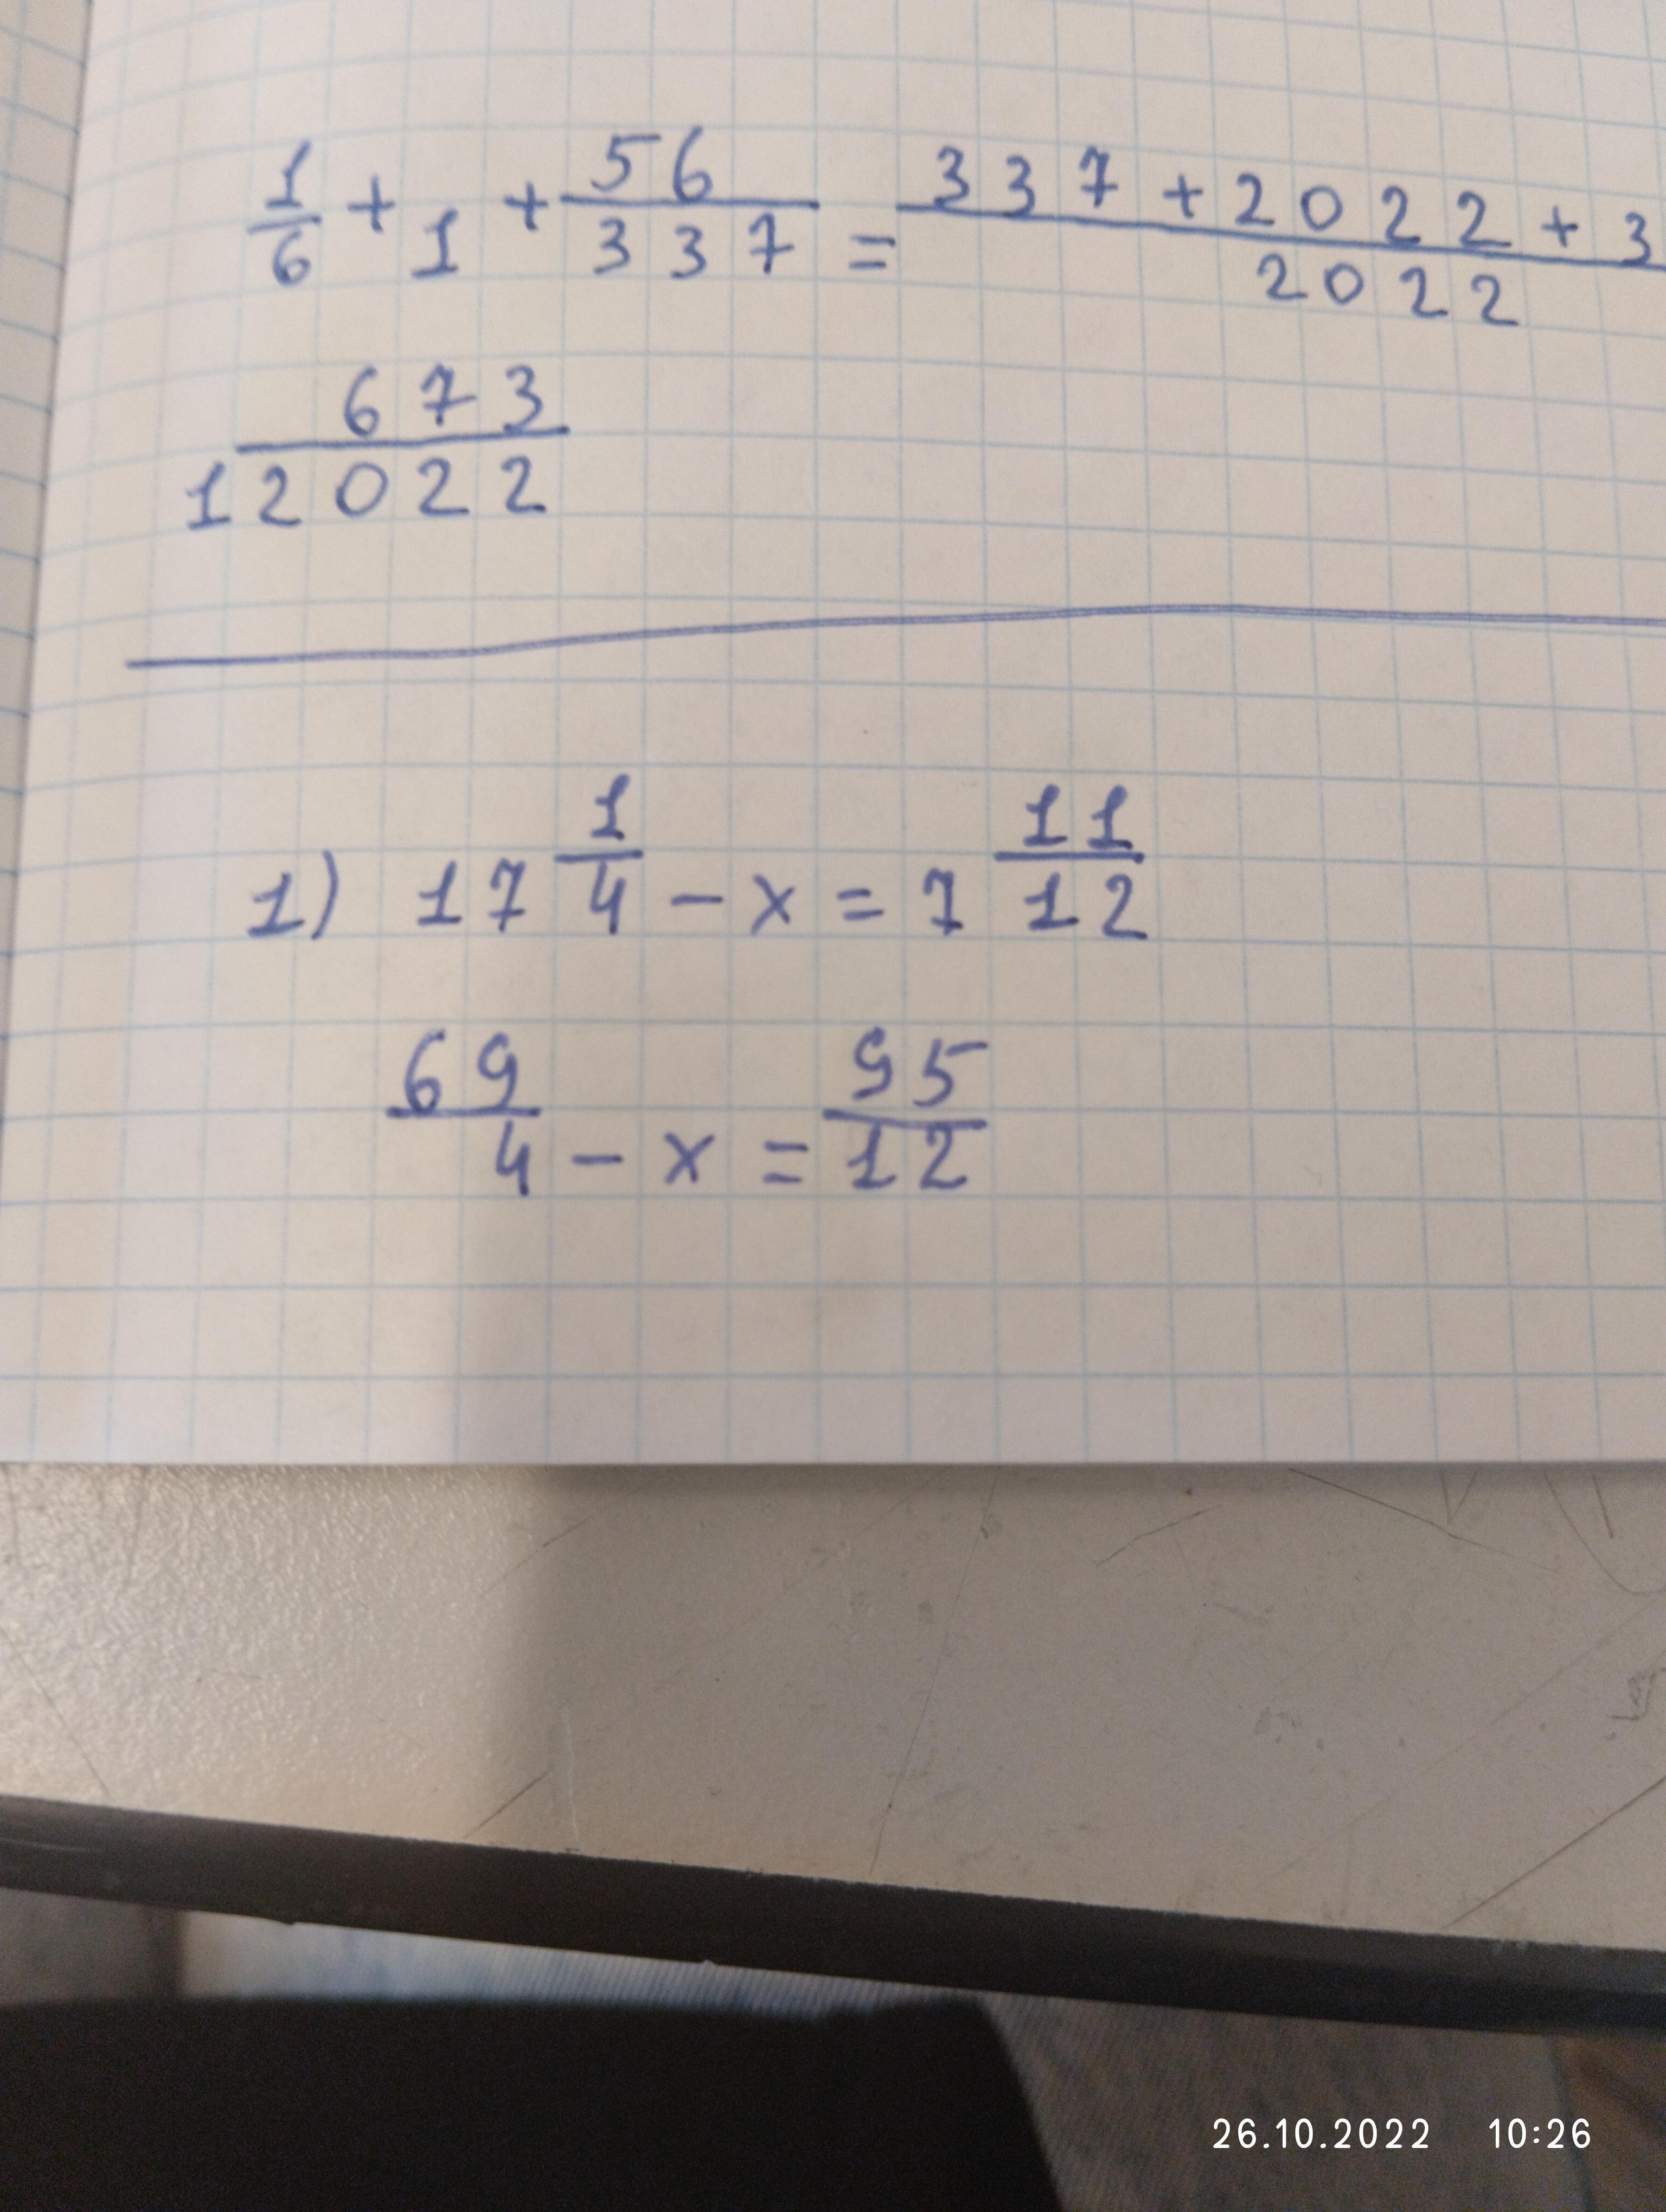 1/6 + 1 + 56/337 = 337 + 2022 + 3/2022
1 673/2022
1) 17 1/4 - x = 7 11/12
69/4 - x = 95/12
26.10.2022 10:26